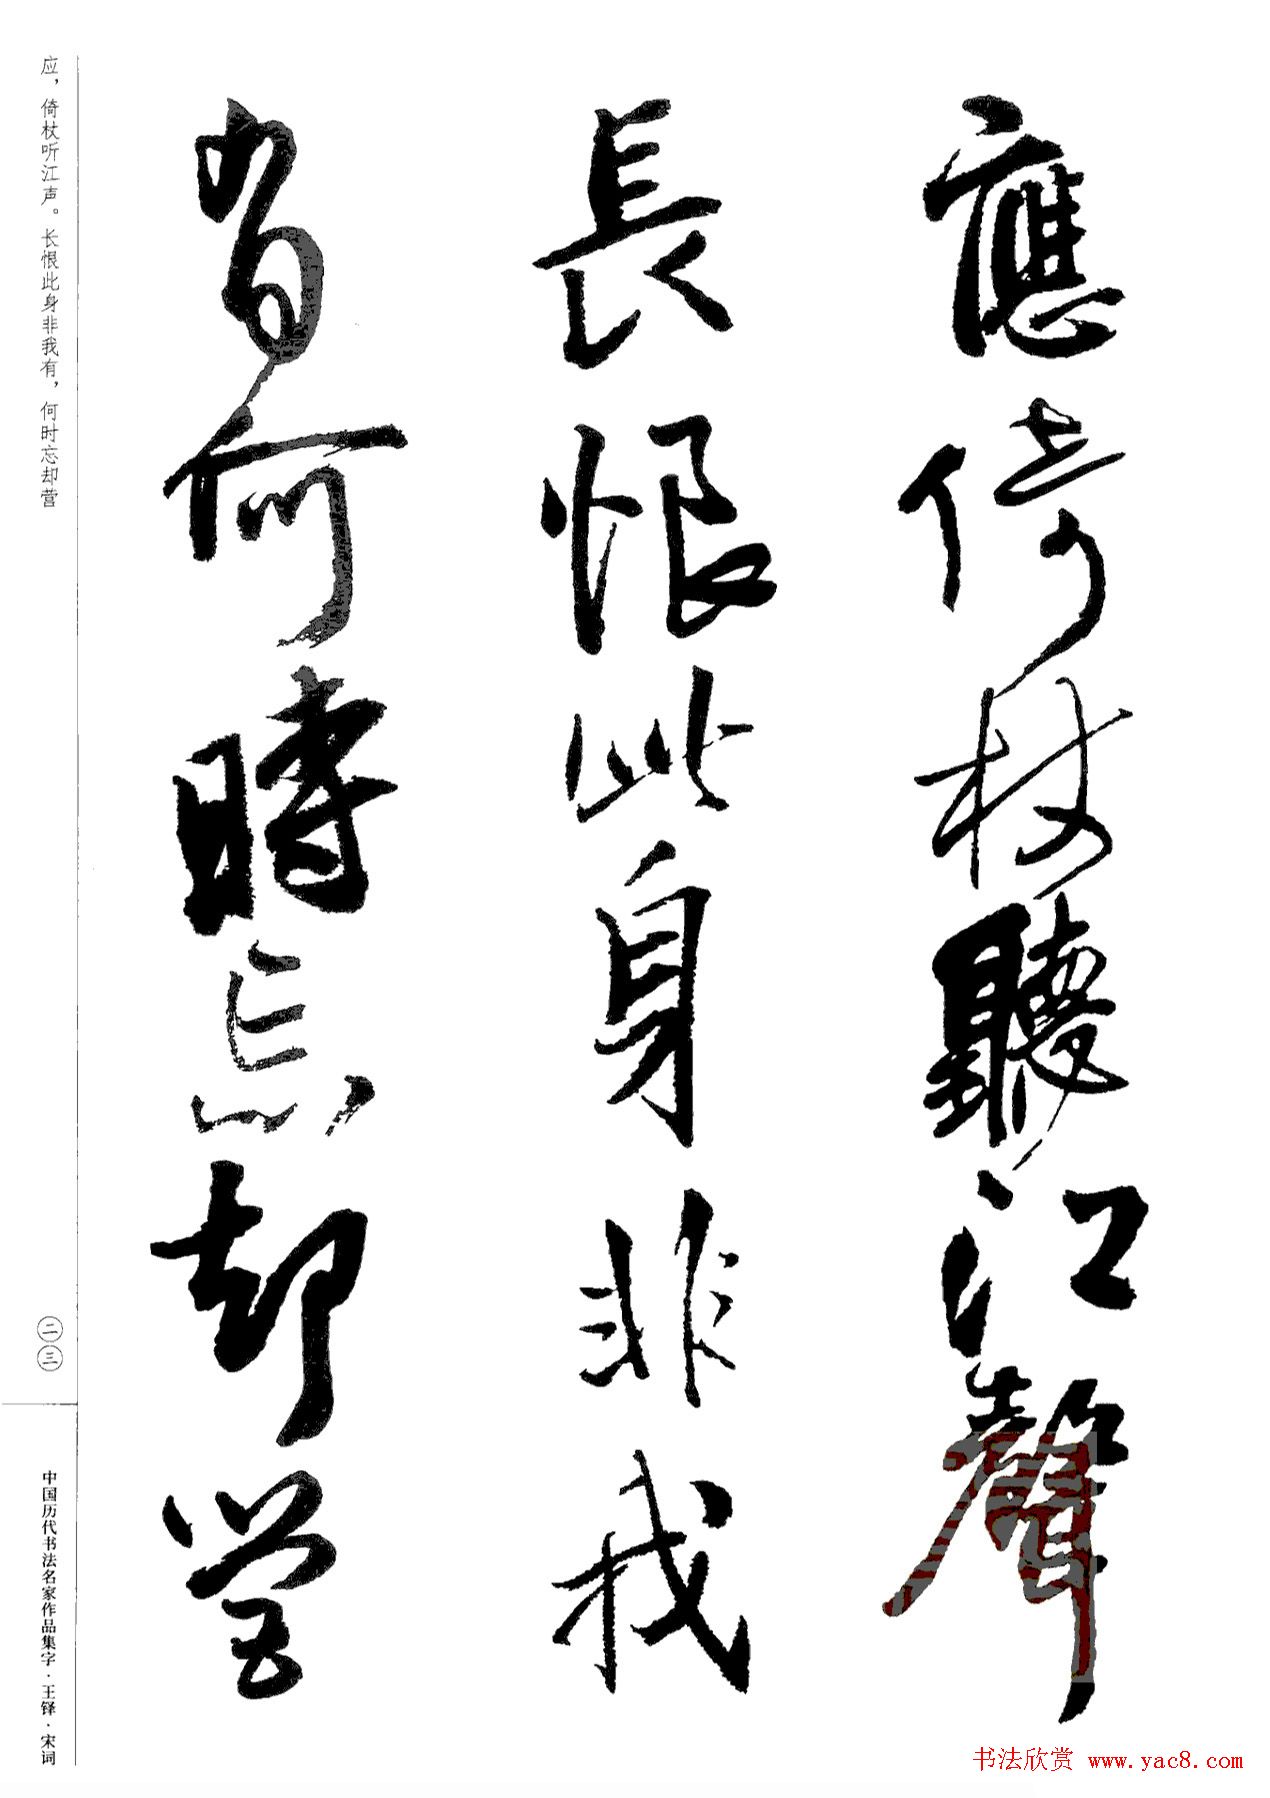 應倚杖聽江聲
長恨此身非我
有何時忘却營
应，倚杖听江声。长恨此身非我有，何时忘却营
二三
中国历代书法名家作品集字·王铎·宋词
书法欣赏 www.yac8.com